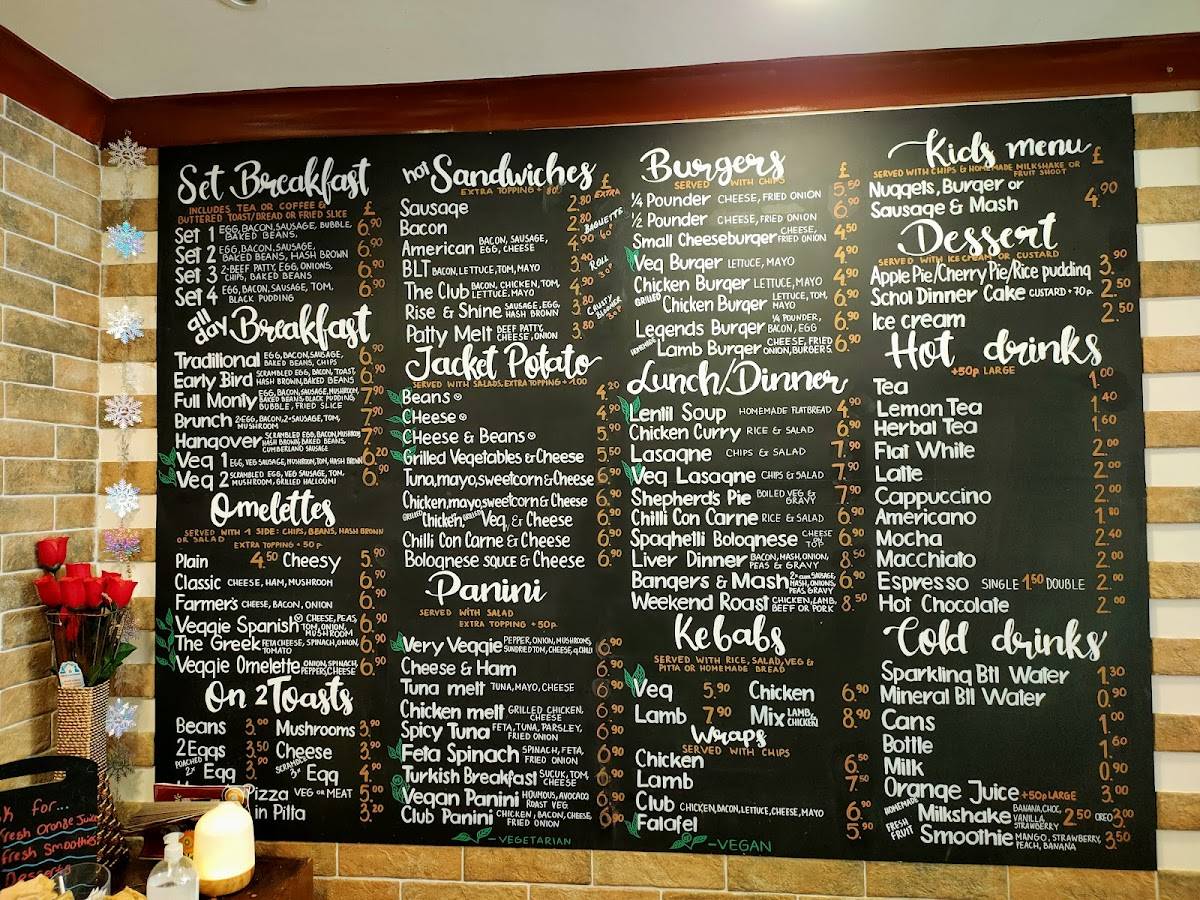 Set Breakfast
INCLUDES TEA OR COFFEE &
BUTTERED TOAST/BREAD OR FRIED SLICE £
Set 1 EGG, BACON, SAUSAGE, BUBBLE, BAKED BEANS, 6.90
Set 2 EGG, BACON, SAUSAGE, BAKED BEANS, HASH BROWN 6.90
Set 3 2-BEEF PATTY, EGG, ONIONS, CHIPS, BAKED BEANS 6.90
Set 4 EGG, BACON, SAUSAGE, TOM, BLACK PUDDING 6.90
all day Breakfast
Traditional EGG, BACON, SAUSAGE, BAKED BEANS, CHIPS 6.90
Early Bird SCRAMBLED EGG, BACON, TOAST, HASH BROWN, BAKED BEANS 6.90
Full Monty EGG, BACON, SAUSAGE, MUSHROOM, BAKED BEANS, BLACK PUDDING, BUBBLE, FRIED SLICE 7.90
Brunch 2 EGG, BACON, 2×SAUSAGE, TOM, MUSHROOM 7.90
Hangover SCRAMBLED EGG, BACON, MUSHROOM, HASH BROWN, BAKED BEANS, CUMBERLAND SAUSAGE 7.90
Veg 1 EGG, VEG SAUSAGE, MUSHROOM, TOM, HASH BROWN 6.20
Veg 2 SCRAMBLED EGG, VEG SAUSAGE, TOM, MUSHROOM, GRILLED HALLOUMI 6.90
Omelettes
SERVED WITH 1 SIDE: CHIPS, BEANS, HASH BROWN
OR SALAD
EXTRA TOPPING + 50 p
Plain 4.50 Cheesy 5.90
Classic CHEESE, HAM, MUSHROOM 6.90
Farmer's CHEESE, BACON, ONION 6.90
Veggie Spanish CHEESE, PEAS, TOM, ONION, MUSHROOM 6.90
The Greek FETA CHEESE, SPINACH, ONION, TOMATO 6.90
Veggie Omelette ONION, SPINACH, PEPPERS, CHEESE 6.90
On 2 Toasts
Beans 3.00 Mushrooms 3.90
2 Eggs POACHED 3.50 Cheese 3.90
2× Egg SCRAMBLED 3× Egg 4.90
Pizza VEG OR MEAT 5.90
in Pitta 3.20
hot Sandwiches
EXTRA TOPPING + 80p £ EXTRA
Sausage 2.80
Bacon 2.80 BAGUETTE
American BACON, SAUSAGE, EGG, CHEESE 4.90
BLT BACON, LETTUCE, TOM, MAYO 3.40 ROLL
The Club BACON, CHICKEN, TOM, LETTUCE, MAYO 4.90
Rise & Shine SAUSAGE, EGG, HASH BROWN 3.80 CRUSTY
Patty Melt BEEF PATTY, CHEESE, ONION 3.80
Jacket Potato
SERVED WITH SALADS, EXTRA TOPPING + 1.00
Beans 4.20
Cheese 4.90
Cheese & Beans 5.90
Grilled Vegetables & Cheese 5.50
Tuna, mayo, sweetcorn & Cheese 6.90
Chicken, mayo, sweetcorn & Cheese 6.90
GRILLED Chicken, GRILLED Veg, & Cheese 6.90
Chilli Con Carne & Cheese 6.90
Bolognese sauce & Cheese 6.90
Panini
SERVED WITH SALAD
EXTRA TOPPING + 50p.
Very Veggie PEPPER, ONION, MUSHROOMS, SUNDRIED TOM, CHEESE, 6.90
Cheese & Ham 6.90
Tuna melt TUNA, MAYO, CHEESE 6.90
Chicken melt GRILLED CHICKEN, CHEESE 6.90
Spicy Tuna FETA, TUNA, PARSLEY, FRIED ONION 6.90
Feta Spinach SPINACH, FETA, FRIED ONION 6.90
Turkish Breakfast SUCUK, TOM, CHEESE 6.90
Vegan Panini HOUMOUS, AVOCADO ROAST VEG 6.90
Club Panini CHICKEN, BACON, CHEESE, FRIED ONION 6.90
- VEGETARIAN
Burgers
SERVED WITH CHIPS £
1/4 Pounder CHEESE, FRIED ONION 5.50
1/2 Pounder CHEESE, FRIED ONION 6.90
Small Cheeseburger CHEESE, FRIED ONION 4.50
Veg Burger LETTUCE, MAYO 4.90
Chicken Burger LETTUCE, MAYO 4.90
GRILLED Chicken Burger LETTUCE, TOM, MAYO 6.90
Legends Burger 1/4 POUNDER, BACON, EGG 6.90
HOMEMADE Lamb Burger CHEESE, FRIED ONION, BURGERS 6.90
Lunch/Dinner
Lentil Soup HOMEMADE FLATBREAD 4.90
Chicken Curry RICE & SALAD 6.90
Lasagne CHIPS & SALAD 7.90
Veg Lasagne CHIPS & SALAD 7.90
Shepherd's Pie BOILED VEG & GRAVY 7.90
Chilli Con Carne RICE & SALAD 6.90
Spaghetti Bolognese CHEESE ON TOP 6.90
Liver Dinner BACON, MASH, ONION, PEAS & GRAVY 8.50
Bangers & Mash 2× CUM. SAUSAGE, MASH, ONIONS, PEAS, GRAVY 6.90
Weekend Roast CHICKEN, LAMB, BEEF OR PORK 8.50
Kebabs
SERVED WITH RICE, SALAD, VEG &
PITTA OR HOMEMADE BREAD
Veg 5.90 Chicken 6.90
Lamb 7.90 Mix LAMB, CHICKEN 8.90
Wraps
SERVED WITH CHIPS
Chicken 6.50
Lamb 7.50
Club CHICKEN, BACON, LETTUCE, CHEESE, MAYO 6.90
Falafel 5.90
- VEGAN
Kids menu
SERVED WITH CHIPS & HOMEMADE MILKSHAKE OR FRUIT SHOOT £
Nuggets, Burger or
Sausage & Mash 4.90
Dessert
SERVED WITH ICE CREAM OR CUSTARD
Apple Pie/Cherry Pie/Rice pudding 3.90
School Dinner Cake CUSTARD + 70p. 2.50
Ice cream 2.50
Hot drinks
+50p LARGE
Tea 1.00
Lemon Tea 1.40
Herbal Tea 1.60
Flat White 2.00
Latte 2.00
Cappuccino 2.00
Americano 1.80
Mocha 2.40
Macchiato 2.00
Espresso SINGLE 1.60 DOUBLE 2.00
Hot Chocolate 2.00
Cold drinks
Sparkling Btl Water 1.30
Mineral Btl Water 0.90
Cans 1.00
Bottle 1.60
Milk 0.90
Orange Juice +50p LARGE 3.00
HOMEMADE Milkshake BANANA, CHOC, VANILLA, STRAWBERRY 2.50 OREO 3.00
FRESH FRUIT Smoothie MANGO, STRAWBERRY, PEACH, BANANA 3.50
k for...
Fresh Orange Juice
Fresh Smoothies
Desserts